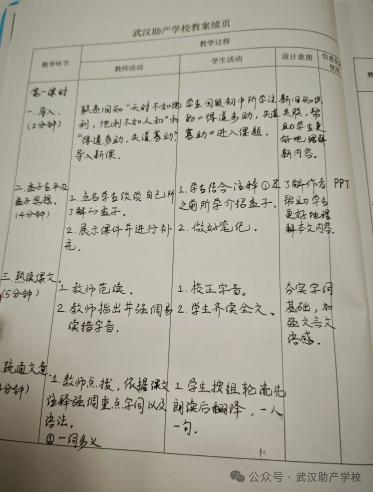 武汉助产学校教案续页
教学过程
教学环节
教师活动
学生活动
设计意图
第一课时
一.导入.
(2分钟)
联系旧知"天时不如地
利，地利不如人和"和
"得道多助，失道寡助"
导入新课.
学生回顾初中所学注
的"得道多助，失道
寡助"进入课题.
新旧知识
关联，帮
助学生更
好地理解
新内容.
二.孟子生平及
孟子思想.
(4分钟)
1.点名学生谈谈自己所
了解的孟子.
2.展示课件并进行补
充.
1.学生结合注释①及
之前所学介绍孟子.
2.做好笔记.
了解作者
帮助学生
更好地理
解本文内容.
PPT
三.熟读课文.
(5分钟)
1.教师范读.
2.教师指出并强调易
读错字音.
1.校正字音.
2.学生齐读全文.
夯实字词
基础，加
强文言文
语感.
疏通文意.
分钟)
1.教师点拨，依据课文
注释强调重点字词以及
语法.
①一词多义
1.学生按组轮流先
朗读后翻译，一人
一句.
公众号·武汉助产学校